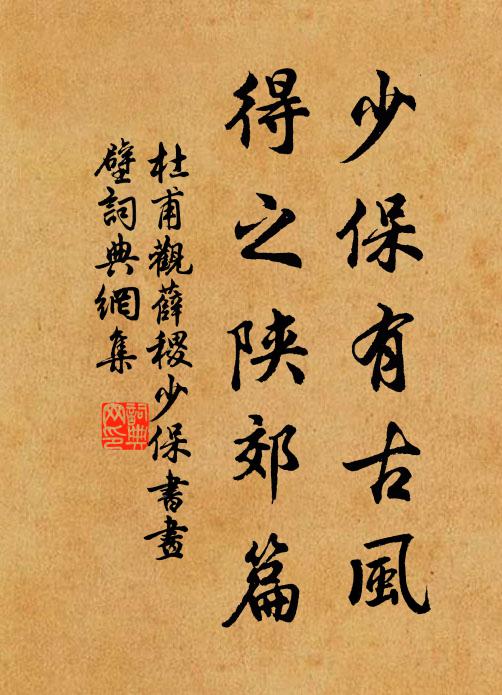 少保有古風
得之陝郊篇
杜甫觀薛稷少保書畫
壁詞典網集
詞典
网印